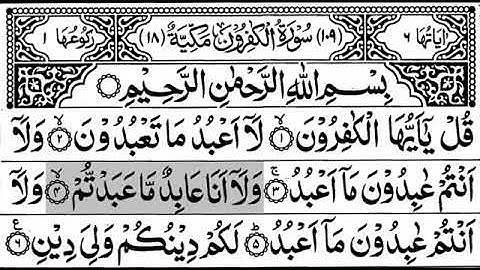 اٰيَاتُهَا ٦ (١٠٩) سُوْرَةُ الْكٰفِرُوْنَ مَكِّيَّةٌ (١٨) رُكُوْعُهَا ١
بِسْمِ اللهِ الرَّحْمٰنِ الرَّحِيْمِ ۝
قُلْ يٰٓاَيُّهَا الْكٰفِرُوْنَ ۝١ۙ لَآ اَعْبُدُ مَا تَعْبُدُوْنَ ۝٢ۙ وَلَآ
اَنْتُمْ عٰبِدُوْنَ مَآ اَعْبُدُ ۝٣ۚ وَلَآ اَنَا عَابِدٌ مَّا عَبَدْتُّمْ ۝٤ۙ وَلَآ
اَنْتُمْ عٰبِدُوْنَ مَآ اَعْبُدُ ۝٥ؕ لَكُمْ دِيْنُكُمْ وَلِيَ دِيْنِ ۝٦ ع